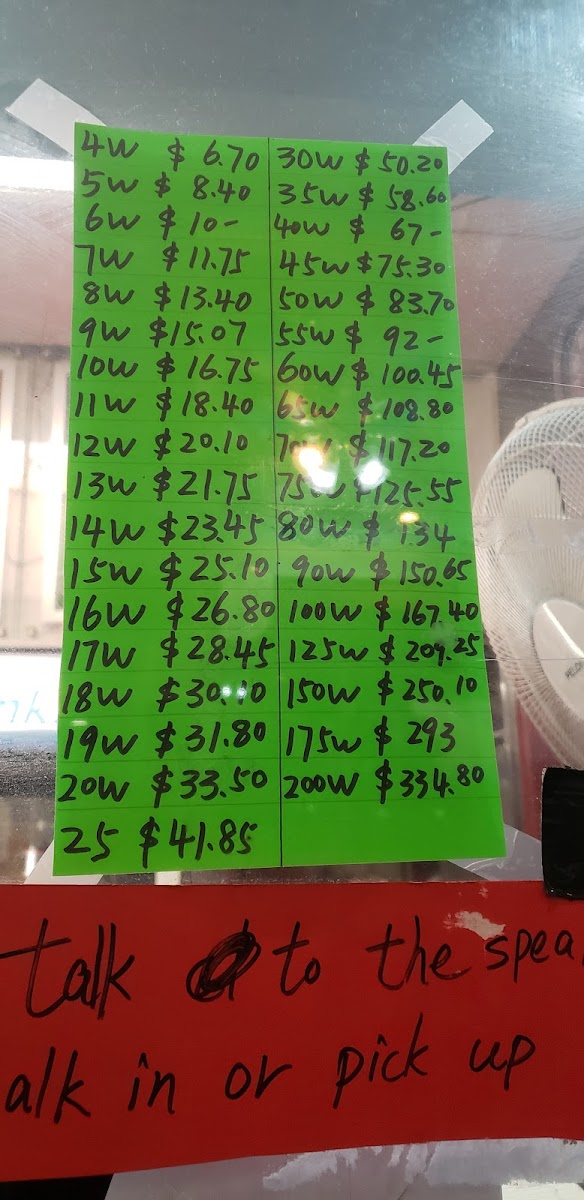 4W $ 6.70
5W $ 8.40
6W $ 10-
7W $11.75
8W $13.40
9W $15.07
10W $16.75
11W $18.40
12W $20.10
13W $21.75
14W $23.45
15W $25.10
16W $26.80
17W $28.45
18W $30.10
19W $31.80
20W $33.50
25 $41.85
30W $50.20
35W $58.60
40W $ 67-
45W $75.30
50W $83.70
55W $ 92-
60W $100.45
65W $108.80
70W $117.20
75W $125.55
80W $ 134
90W $150.65
100W $167.40
125W $209.25
150W $250.10
175W $ 293
200W $334.80
talk to the spea
alk in or pick up